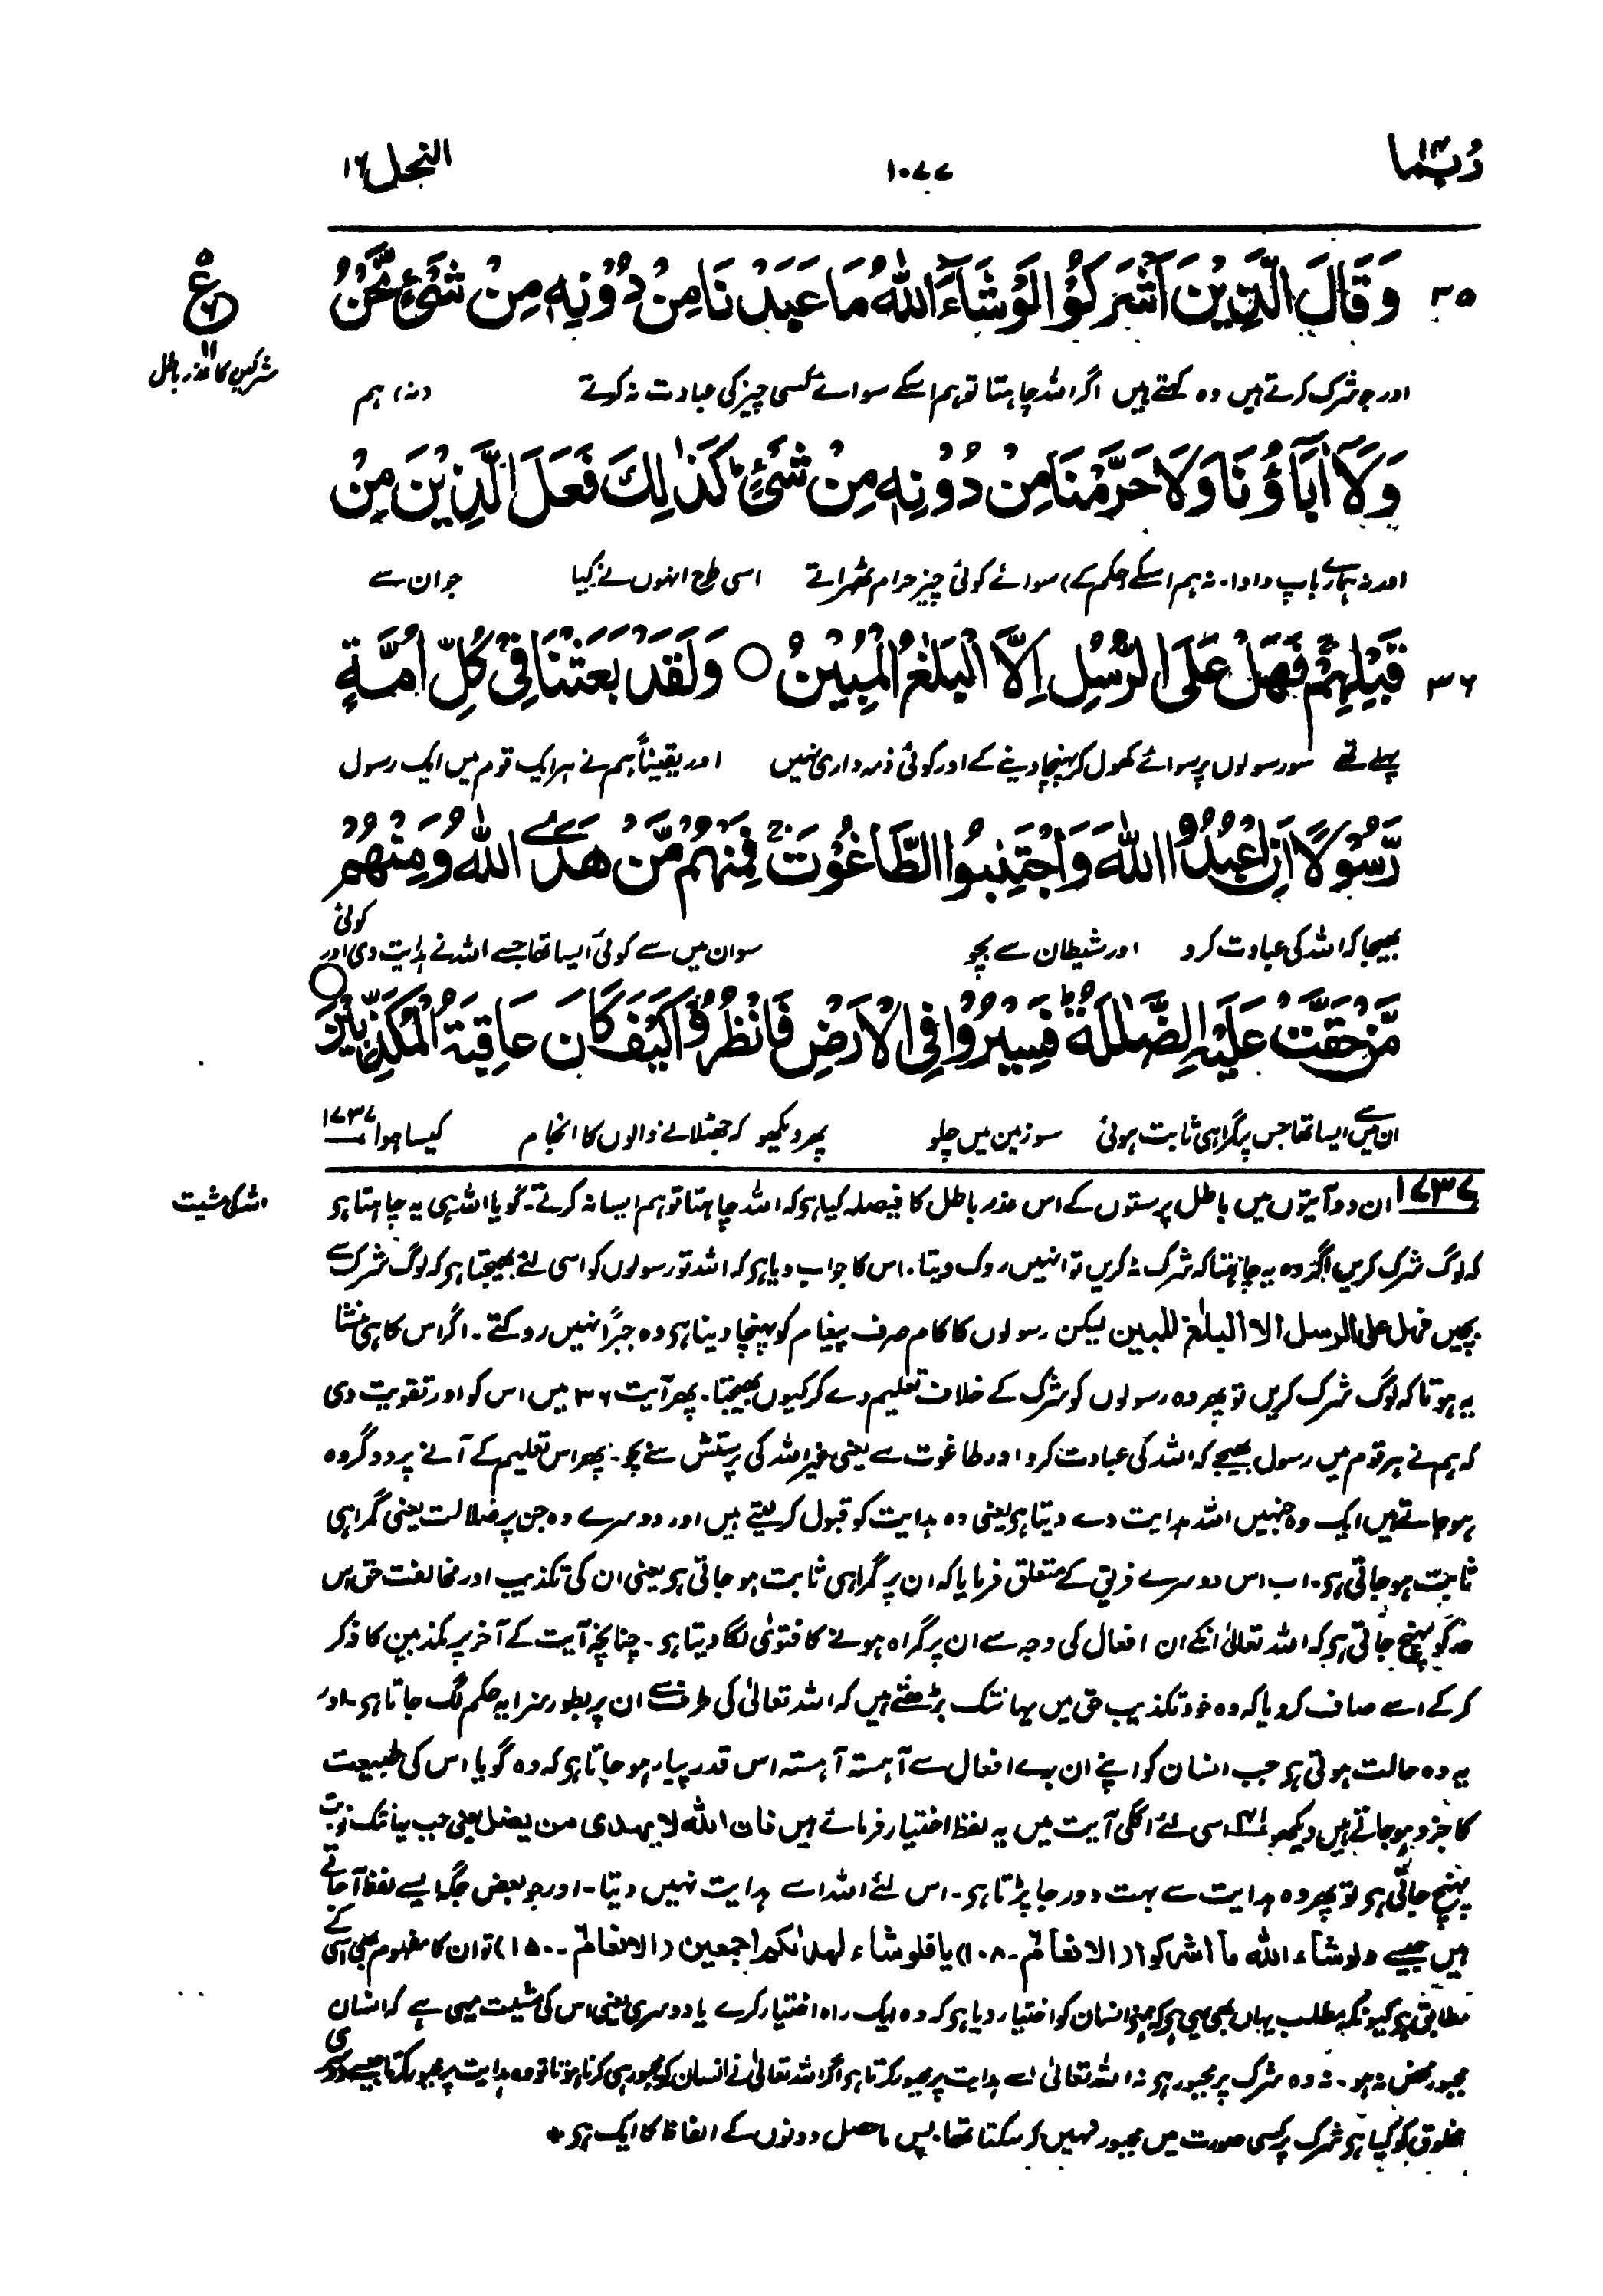 ربما ۱۴
۱۰۷۷
النحل ۱۶
ع
۱۱
مشرکین کا عذر باطل
۳۵ وَقَالَ الَّذِيْنَ اَشْرَكُوْا لَوْ شَآءَ اللّٰهُ مَا عَبَدْنَا مِنْ دُوْنِهٖ مِنْ شَیْءٍ نَّحْنُ
اور جو شرک کرتے ہیں وہ کہتے ہیں اگر اللہ چاہتا تو ہم اسکے سوائے کسی چیز کی عبادت نہ کرتے (نہ) ہم
وَلَآ اٰبَآؤُنَا وَلَا حَرَّمْنَا مِنْ دُوْنِهٖ مِنْ شَیْءٍ ؕ كَذٰلِكَ فَعَلَ الَّذِيْنَ مِنْ
اور نہ ہمارے باپ دادا ۔ نہ ہم اسکے (حکم کے) سوائے کوئی چیز حرام ٹھہراتے اسی طرح انہوں نے کیا جو ان سے
۳۶ قَبْلِهِمْ ۚ فَهَلْ عَلَى الرُّسُلِ اِلَّا الْبَلٰغُ الْمُبِيْنُ ○ وَلَقَدْ بَعَثْنَا فِیْ كُلِّ اُمَّةٍ
پہلے تھے سو رسولوں پر سوائے کھول کر پہنچا دینے کے اور کوئی ذمہ داری نہیں اور یقیناً ہم نے ہر ایک قوم میں ایک رسول
رَّسُوْلًا اَنِ اعْبُدُوا اللّٰهَ وَاجْتَنِبُوا الطَّاغُوْتَ ۚ فَمِنْهُمْ مَّنْ هَدَی اللّٰهُ وَمِنْهُمْ
بھیجا کہ اللہ کی عبادت کرو اور شیطان سے بچو سو ان میں سے کوئی ایسا تھا جسے اللہ نے ہدایت دی اور کوئی
مَّنْ حَقَّتْ عَلَيْهِ الضَّلٰلَةُ ؕ فَسِيْرُوْا فِی الْاَرْضِ فَانْظُرُوْا كَيْفَ كَانَ عَاقِبَةُ الْمُكَذِّبِيْنَ ○
ان میں سے ایسا تھا جس پر گمراہی ثابت ہوئی سو زمین میں چلو پھر دیکھو کہ جھٹلانے والوں کا انجام کیسا ہوا ۱۷۳۷
اللہ کی مشیت
۱۷۳۷ ان دو آیتوں میں باطل پرستوں کے اس عذر باطل کا فیصلہ کیا ہی کہ اللہ چاہتا تو ہم ایسا نہ کرتے ۔ گویا اللہ ہی یہ چاہتا ہی
کہ لوگ شرک کریں اگر وہ یہ چاہتا کہ شرک نہ کریں تو انہیں روک دیتا ۔ اس کا جواب دیا ہی کہ اللہ تو رسولوں کو اسی لئے بھیجتا ہی کہ لوگ شرک سے
بچیں فہل علی الرسل الا البلٰغ المبین لیکن رسولوں کا کام صرف پیغام کو پہنچا دینا ہی وہ جبراً نہیں روکتے ۔ اگر اس کا ہی منشا
یہ ہوتا کہ لوگ شرک کریں تو پھر وہ رسولوں کو شرک کے خلاف تعلیم دے کر کیوں بھیجتا ۔ پھر آیت ۳۶ میں اس کو اور تقویت دی
کہ ہم نے ہر قوم میں رسول بھیجے کہ اللہ کی عبادت کرو اور طاغوت سے یعنی غیر اللہ کی پرستش سے بچو ۔ پھر اس تعلیم کے آنے پر دو گروہ
ہو جاتے ہیں ایک وہ جنہیں اللہ ہدایت دے دیتا ہی یعنی وہ ہدایت کو قبول کر لیتے ہیں اور دوسرے وہ جن پر ضلالت یعنی گمراہی
ثابت ہو جاتی ہی ۔ اب اس دوسرے فریق کے متعلق فرمایا کہ ان پر گمراہی ثابت ہو جاتی ہی یعنی ان کی تکذیب اور مخالفت حق اس
حد کو پہنچ جاتی ہی کہ اللہ تعالیٰ انکے ان افعال کی وجہ سے ان پر گمراہ ہونے کا فتویٰ لگا دیتا ہی ۔ چنانچہ آیت کے آخر پر مکذبین کا ذکر
کر کے اسے صاف کر دیا کہ وہ خود تکذیب حق میں یہانتک بڑھتے ہیں کہ اللہ تعالیٰ کی طرف سے ان پر بطور سزا یہ حکم لگ جاتا ہی ۔ اور
یہ وہ حالت ہوتی ہی جب انسان کو اپنے ان برے افعال سے آہستہ آہستہ اس قدر پیار ہو جاتا ہی کہ وہ گویا اس کی طبیعت
کا جزو ہو جاتے ہیں دیکھو اسی لئے اگلی آیت میں یہ لفظ اختیار فرمائے ہیں فان اللہ لا یہدی من یضل یعنی جب یہانتک نوبت
پہنچ جاتی ہی تو پھر وہ ہدایت سے بہت دور جا پڑتا ہی ۔ اس لئے اللہ اسے ہدایت نہیں دیتا ۔ اور جو بعض جگہ ایسے لفظ آ جاتے
ہیں جیسے ولو شاء اللہ ما اشرکوا (الانعام ۔ ۱۰۸) یا فلو شاء لہدٰىکم اجمعین (الانعام ۔ ۱۵۰) تو ان کا مفہوم بھی اسی کے
مطابق ہی کیونکہ مطلب یہاں بھی یہی ہی کہ ہم نے انسان کو اختیار دیا ہی کہ وہ ایک راہ اختیار کرے یا دوسری یعنی اس کی مشیت یہی ہے کہ انسان
مجبور محض نہ ہو ۔ نہ وہ شرک پر مجبور ہی نہ اللہ تعالیٰ اسے ہدایت پر مجبور کرتا ہی اگر اللہ تعالیٰ نے انسان کو مجبور ہی کرنا ہوتا تو وہ ہدایت پر مجبور کرتا جیسے دوسری
مخلوق کو کیا ہی شرک پر کسی صورت میں مجبور نہیں کر سکتا تھا ۔ پس ماحصل دونوں کے الفاظ کا ایک ہی *